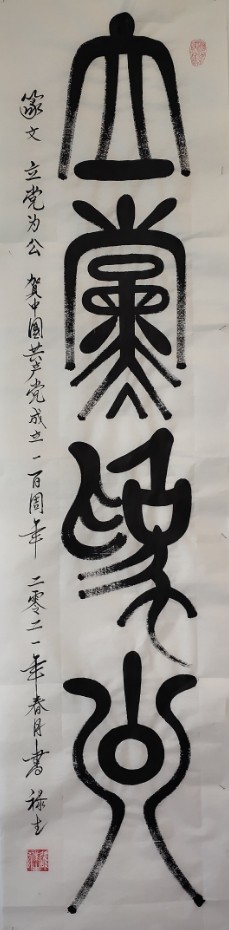 立黨為公
篆文 立党为公 贺中国共产党成立一百周年 二零二一年春月书